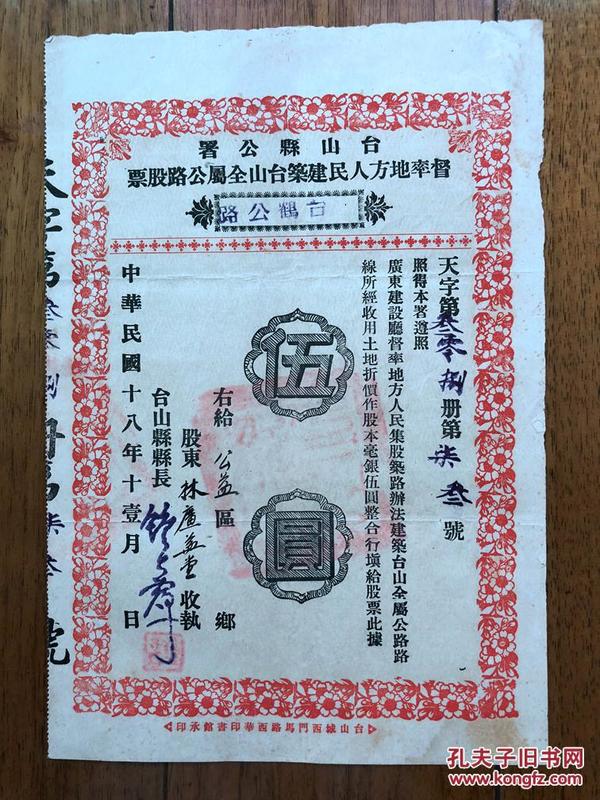 台山縣公署
督率地方人民建築台山全屬公路股票
台鶴公路
天字第叁零捌册第柒叁號
照得本署遵照
廣東建設廳督率地方人民集股築路辦法建築台山全屬公路路
線所經收用土地折價作股本毫銀伍圓整合行填給股票此據
伍圓
右給公益區 鄉
股東林 益堂收執
台山縣縣長
中華民國十八年十壹月 日
天字第叁零捌册第柒叁號
台山城西門馬路西華印書館承印
孔夫子旧书网
www.kongfz.com